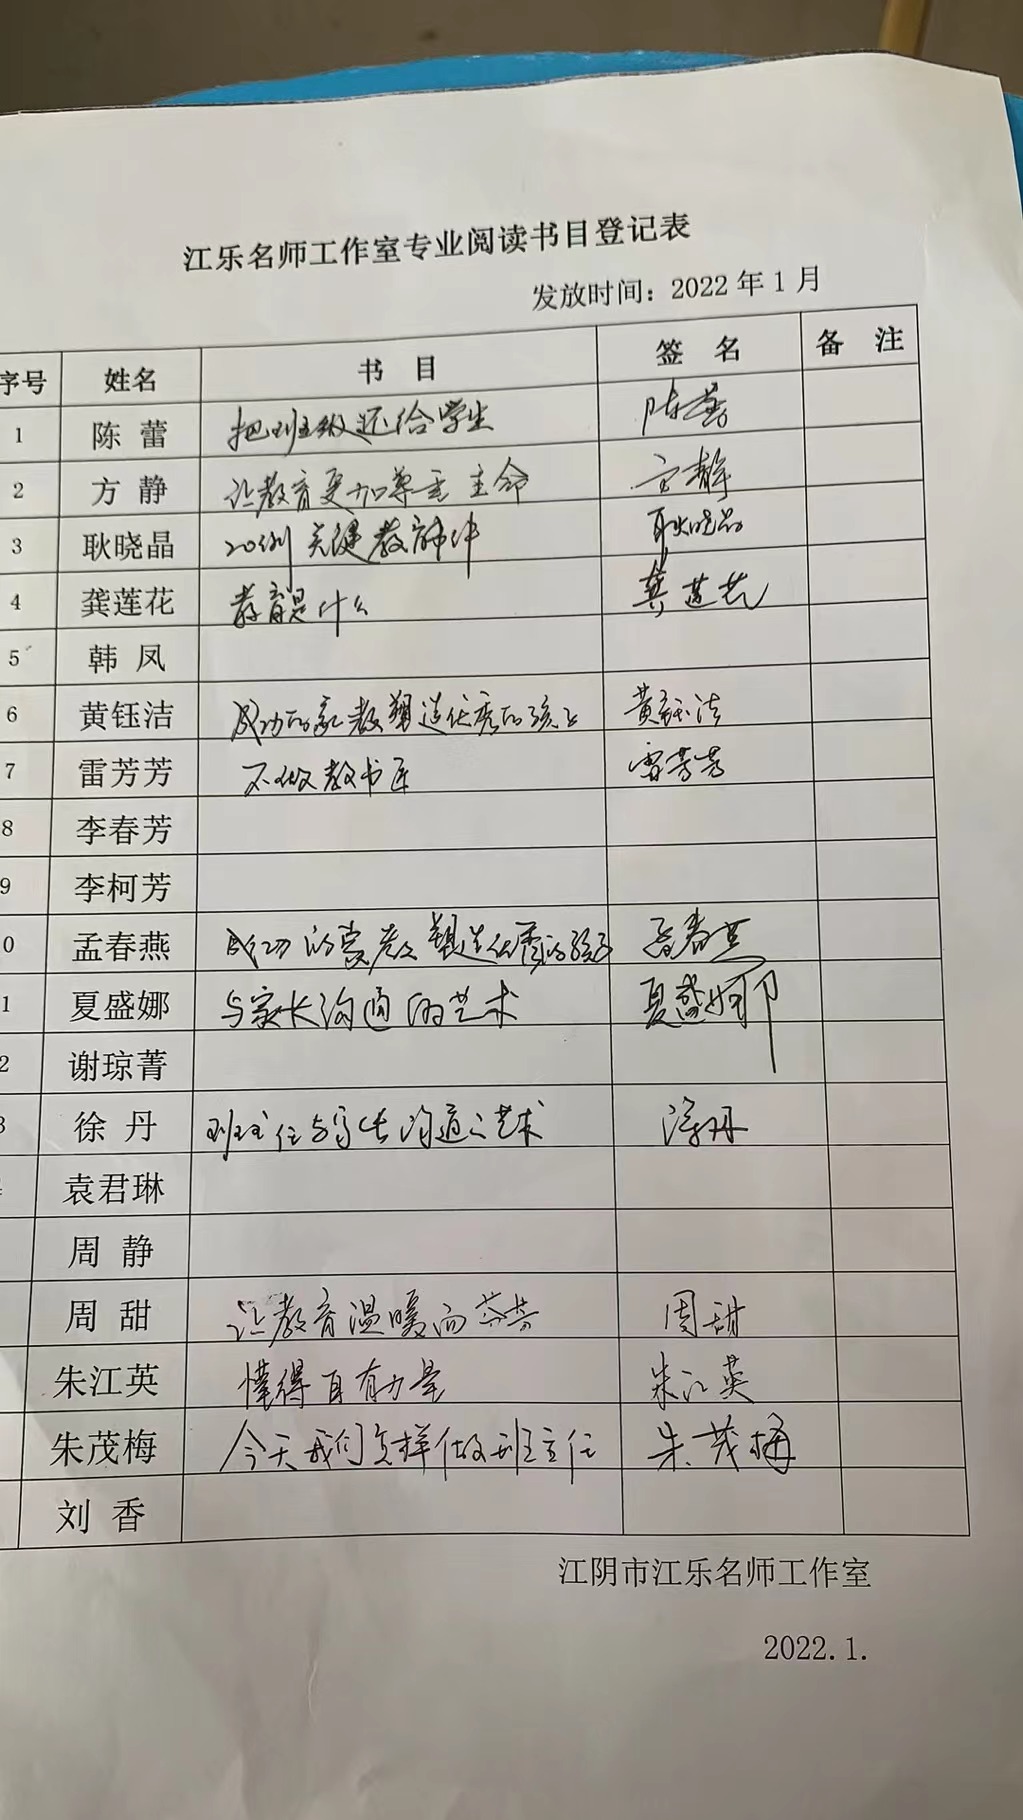 江乐名师工作室专业阅读书目登记表
发放时间：2022年1月
序号 姓名 书 目 签 名 备 注
1 陈 蕾 把班级还给学生 陈蕾
2 方 静 让教育更加尊重生命 方静
3 耿晓晶 20例关键教育事件 耿晓晶
4 龚莲花 教育是什么 龚莲花
5 韩 凤
6 黄钰洁 成功的家教塑造优秀的孩子 黄钰洁
7 雷芳芳 不做教书匠 雷芳芳
8 李春芳
9 李柯芳
0 孟春燕 成功的家教塑造优秀的孩子 孟春燕
1 夏盛娜 与家长沟通的艺术 夏盛娜
2 谢琼菁
3 徐 丹 班主任与家长沟通之艺术 徐丹
袁君琳
周 静
周 甜 让教育温暖而芬芳 周甜
朱江英 懂得自有力量 朱江英
朱茂梅 今天我们怎样做班主任 朱茂梅
刘 香
江阴市江乐名师工作室
2022.1.